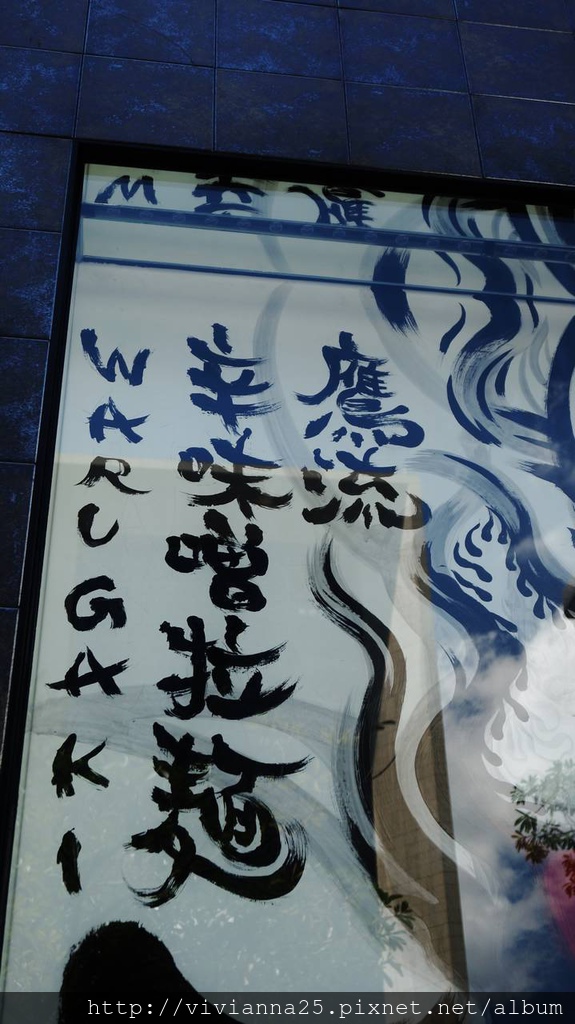 鷹流
辛味噌拉麺
WARUGAKI
http://vivianna25.pixnet.net/album